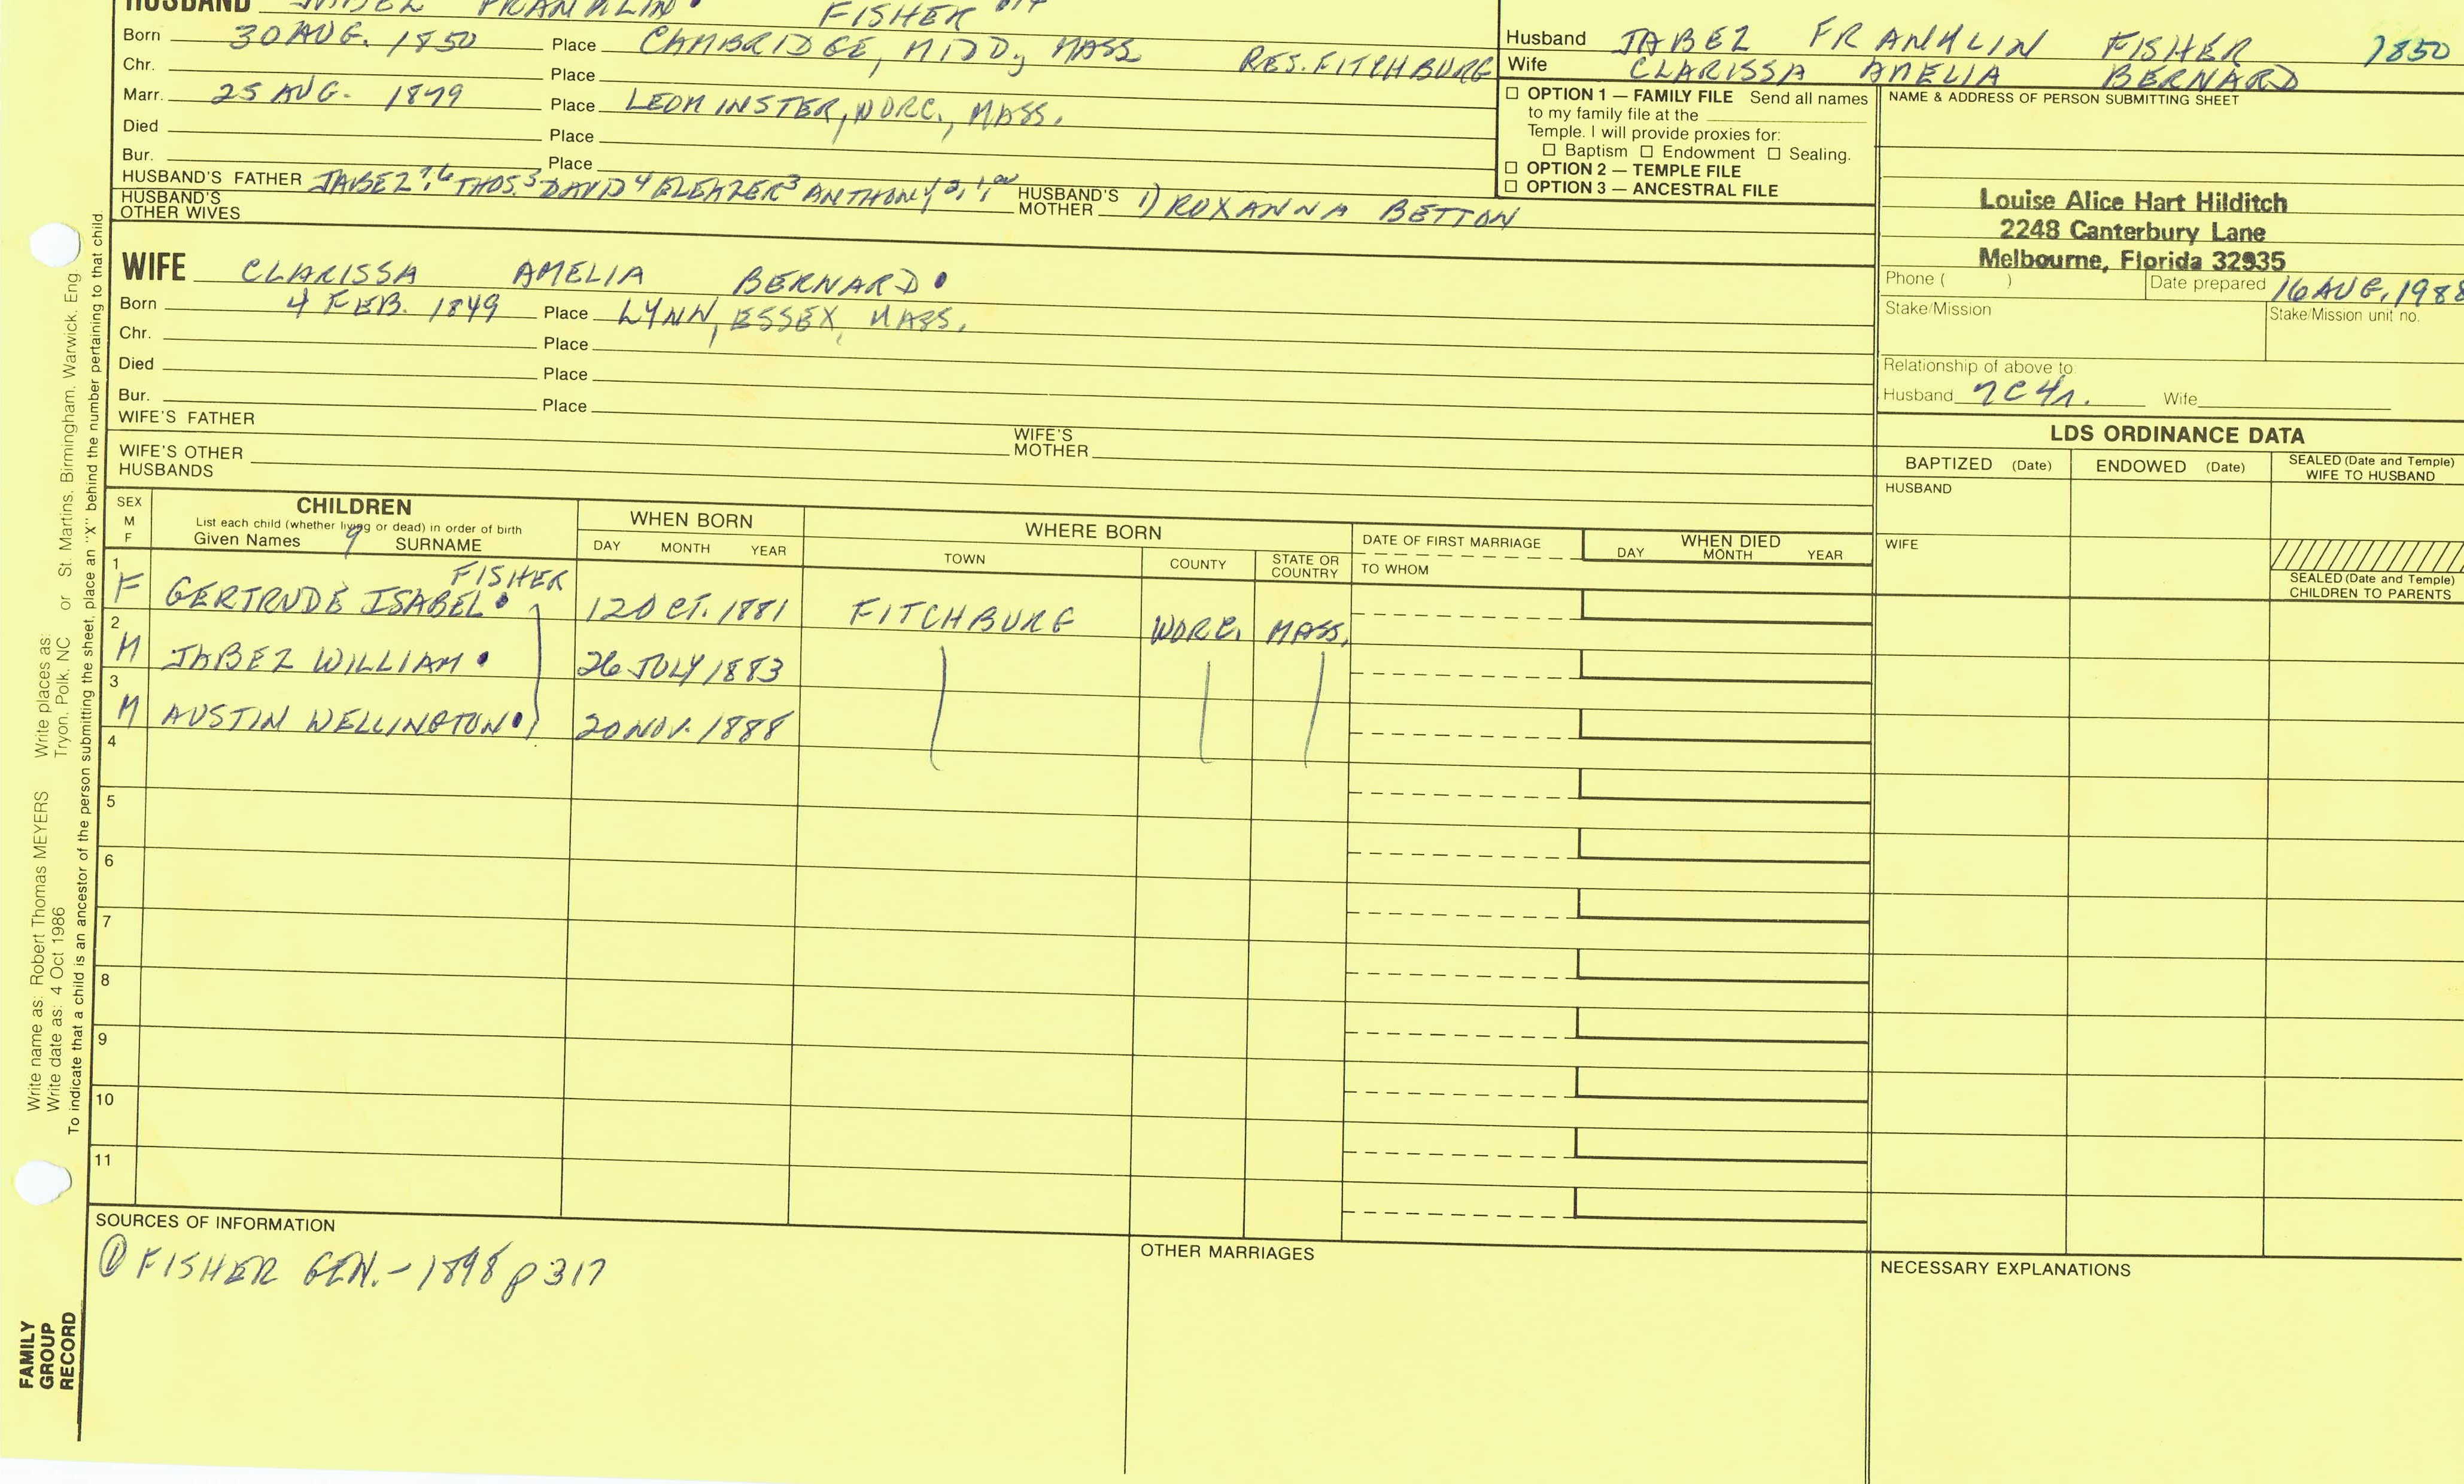 HUSBAND JABEZ FRANKLIN FISHER
Born 30 AUG. 1850 Place CAMBRIDGE, MIDD, MASS RES. FITCHBURG
Chr. Place
Marr. 25 AUG. 1879 Place LEOMINSTER, WORC., MASS.
Died Place
Bur. Place
HUSBAND'S FATHER JABEZ THOS. DAVID 4 ELEAZER 3 ANTHONY HUSBAND'S MOTHER 1) ROXANNA BETTON
HUSBAND'S OTHER WIVES
Husband JABEZ FRANKLIN FISHER 1850
Wife CLARISSA AMELIA BERNARD
☐ OPTION 1 — FAMILY FILE Send all names
to my family file at the
Temple. I will provide proxies for:
☐ Baptism ☐ Endowment ☐ Sealing.
☐ OPTION 2 — TEMPLE FILE
☐ OPTION 3 — ANCESTRAL FILE
NAME & ADDRESS OF PERSON SUBMITTING SHEET
Louise Alice Hart Hilditch
2248 Canterbury Lane
Melbourne, Florida 32935
Phone ( ) Date prepared 16 AUG, 1988
Stake/Mission Stake/Mission unit no.
Relationship of above to:
Husband 7C4r. Wife
WIFE CLARISSA AMELIA BERNARD
Born 4 FEB. 1849 Place LYNN, ESSEX, MASS.
Chr. Place
Died Place
Bur. Place
WIFE'S FATHER WIFE'S MOTHER
WIFE'S OTHER HUSBANDS
LDS ORDINANCE DATA
BAPTIZED (Date) ENDOWED (Date) SEALED (Date and Temple) WIFE TO HUSBAND
HUSBAND
WIFE
SEALED (Date and Temple) CHILDREN TO PARENTS
SEX M F
CHILDREN
List each child (whether living or dead) in order of birth
Given Names 9 SURNAME
WHEN BORN
DAY MONTH YEAR
WHERE BORN
TOWN COUNTY STATE OR COUNTRY
DATE OF FIRST MARRIAGE
TO WHOM
WHEN DIED
DAY MONTH YEAR
1 F GERTRUDE ISABEL FISHER 12 OCT. 1881 FITCHBURG WORC. MASS.
2 M JABEZ WILLIAM 26 JULY 1883
3 M AUSTIN WELLINGTON 20 NOV. 1888
4
5
6
7
8
9
10
11
SOURCES OF INFORMATION
① FISHER GEN. - 1898 p 317
OTHER MARRIAGES
NECESSARY EXPLANATIONS
Write name as: Robert Thomas MEYERS Write places as: Tryon, Polk, NC or St. Martins, Birmingham, Warwick, Eng.
Write date as: 4 Oct 1986
To indicate that a child is an ancestor of the person submitting the sheet, place an "X" behind the number pertaining to that child.
FAMILY
GROUP
RECORD